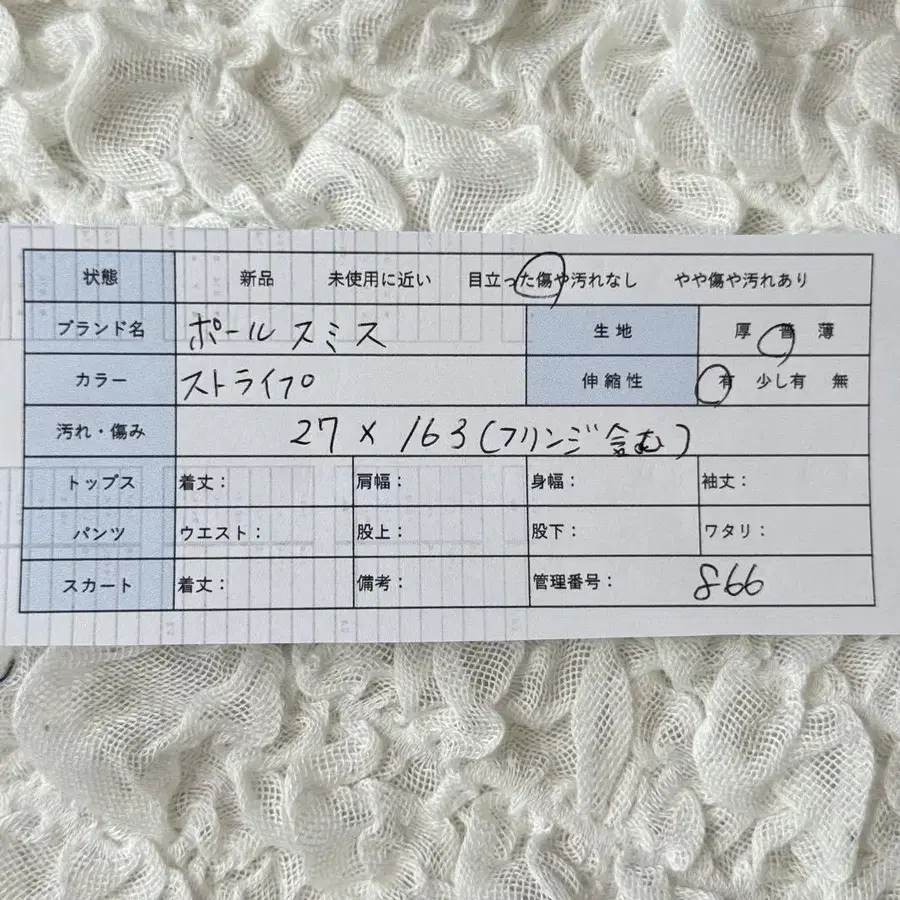 状態 新品 未使用に近い 目立った傷や汚れなし やや傷や汚れあり
ブランド名 ポールスミス 生地 厚 普 薄
カラー ストライプ 伸縮性 有 少し有 無
汚れ・傷み 27×163(フリンジ含む)
トップス 着丈: 肩幅: 身幅: 袖丈:
パンツ ウエスト: 股上: 股下: ワタリ:
スカート 着丈: 備考: 管理番号: 866